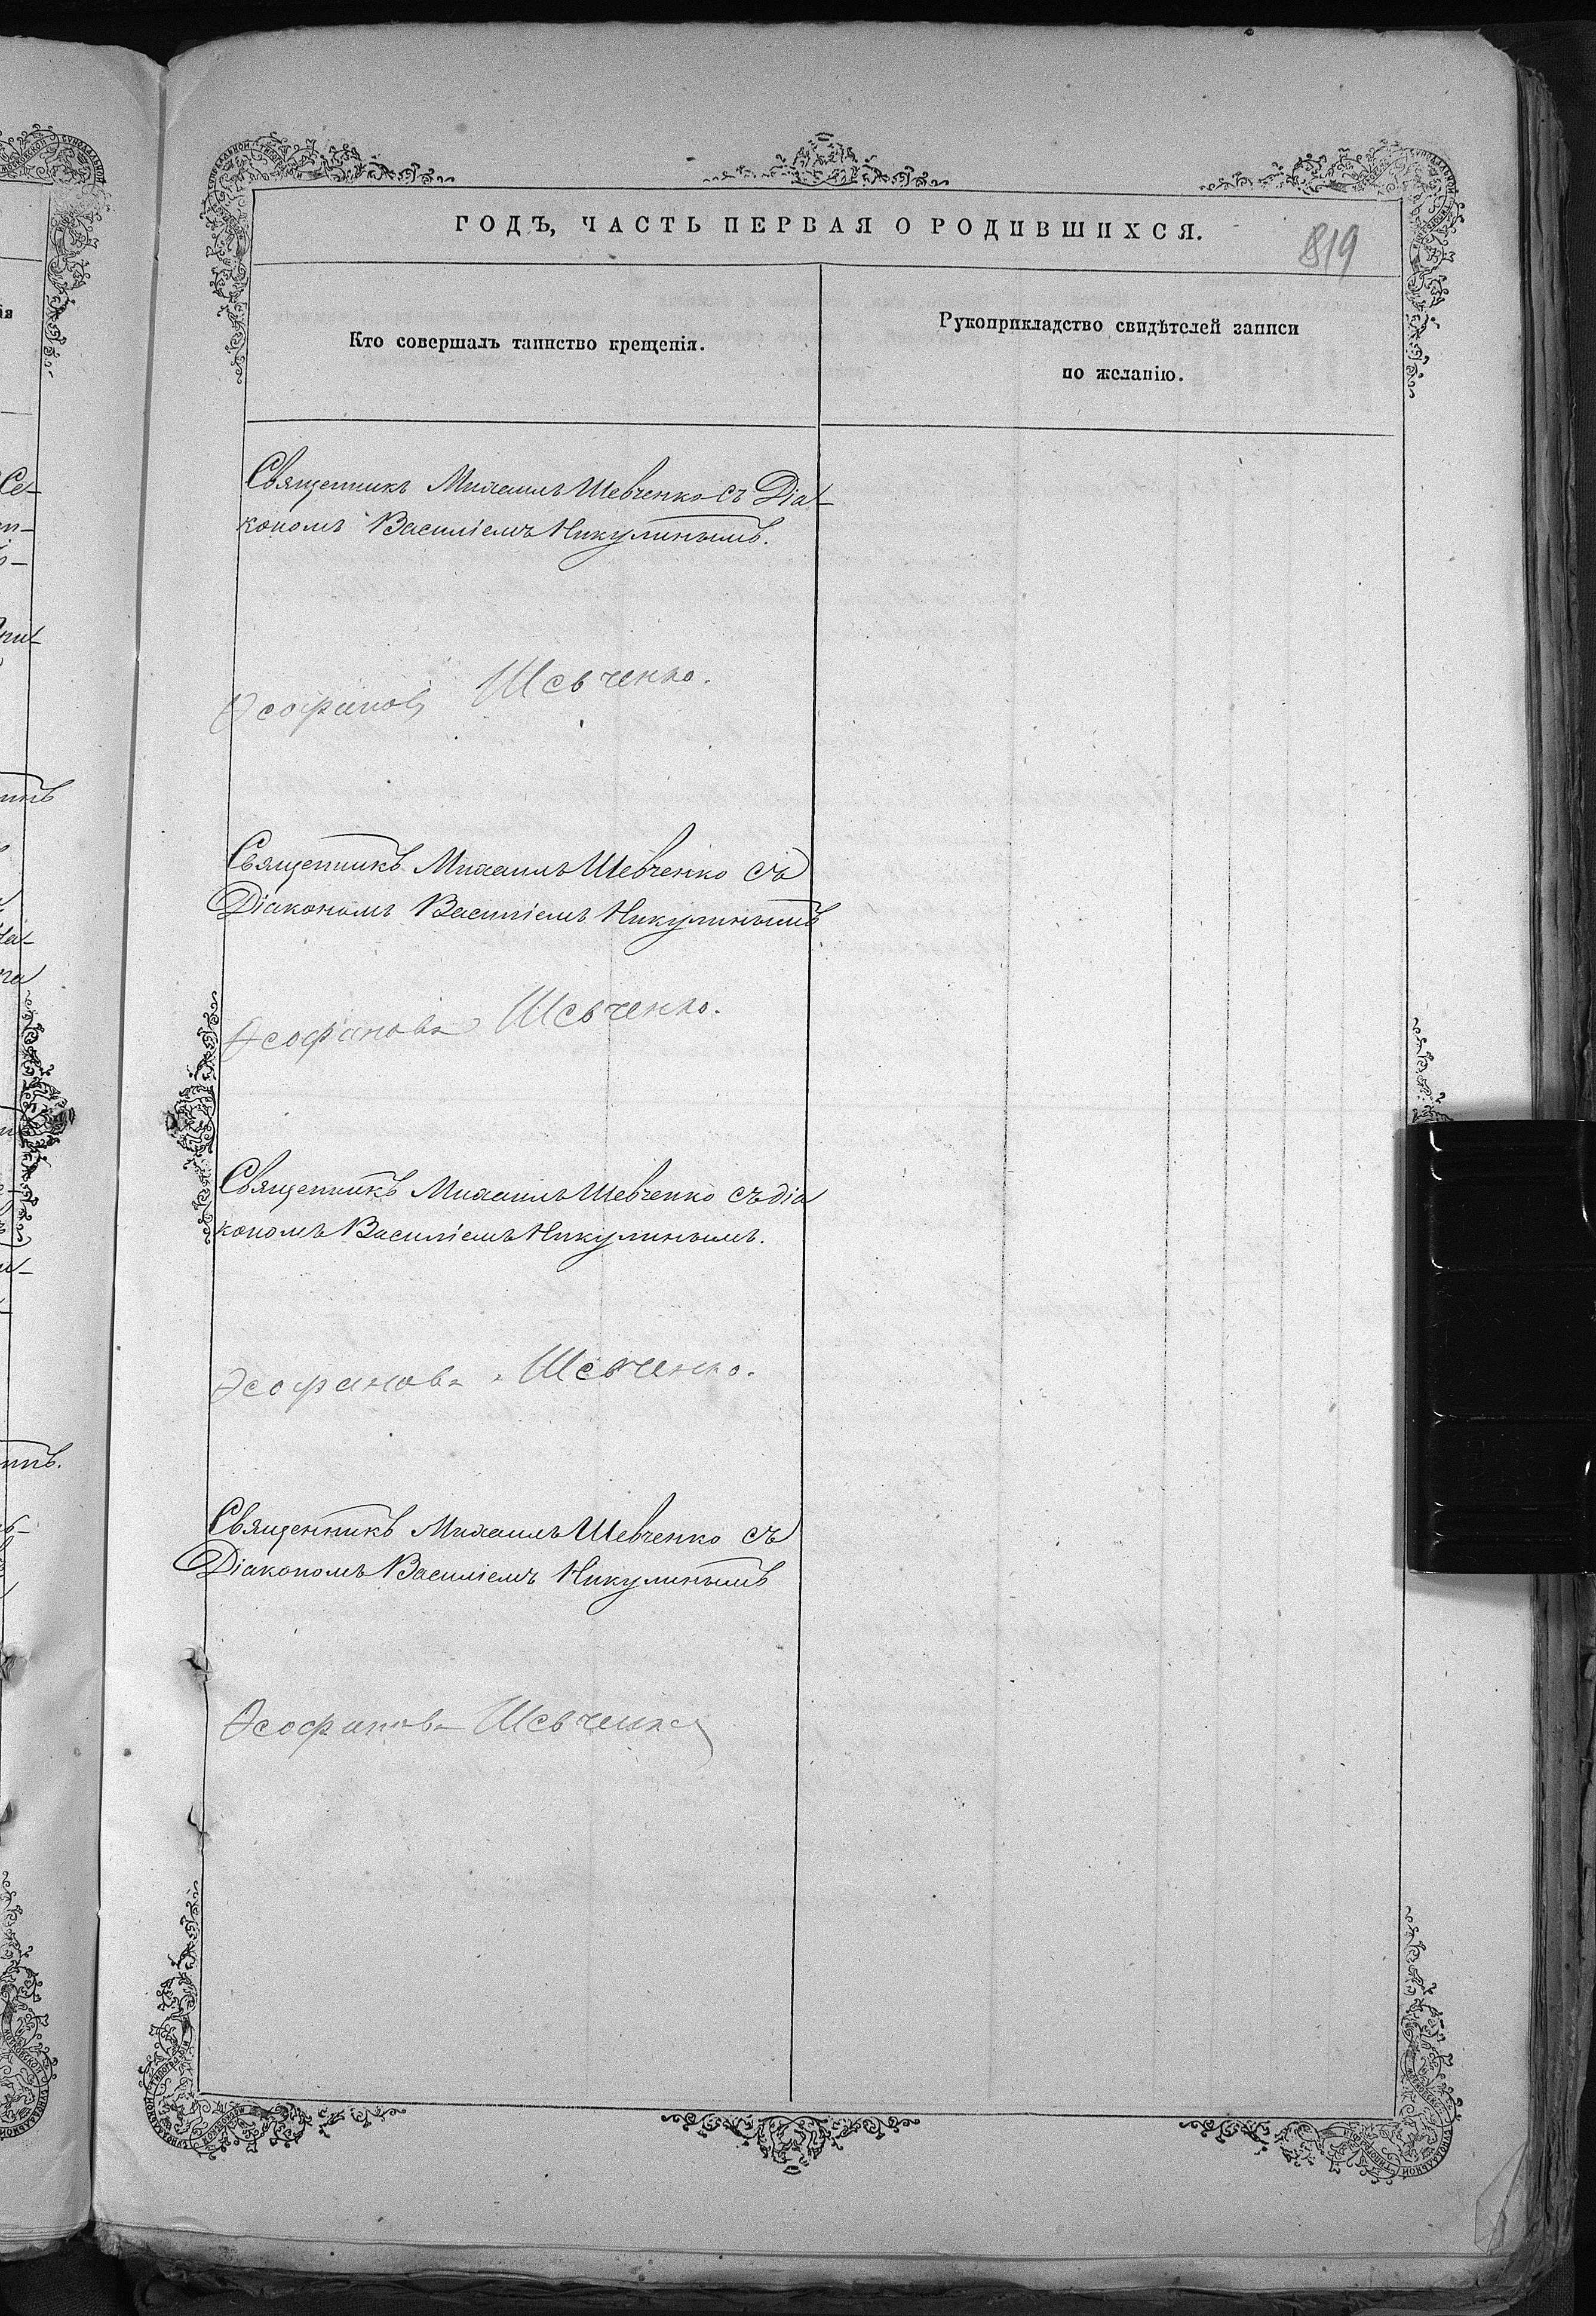 ГОДЪ, ЧАСТЬ ПЕРВАЯ О РОДИВШИХСЯ.
819
Кто совершалъ таинство крещенія.
Рукоприкладство свидѣтелей записи
по желанію.
Священникъ Михаилъ Шевченко съ Діа-
кономъ Василіемъ Никулинымъ.
Ѳеофановъ Шевченко.
Священникъ Михаилъ Шевченко съ
Діакономъ Василіемъ Никулинымъ
Ѳеофановъ Шевченко.
Священникъ Михаилъ Шевченко съ діа
кономъ Василіемъ Никулинымъ.
Ѳеофановъ Шевченко.
Священникъ Михаилъ Шевченко съ
Діакономъ Василіемъ Никулинымъ
Ѳеофановъ Шевченко